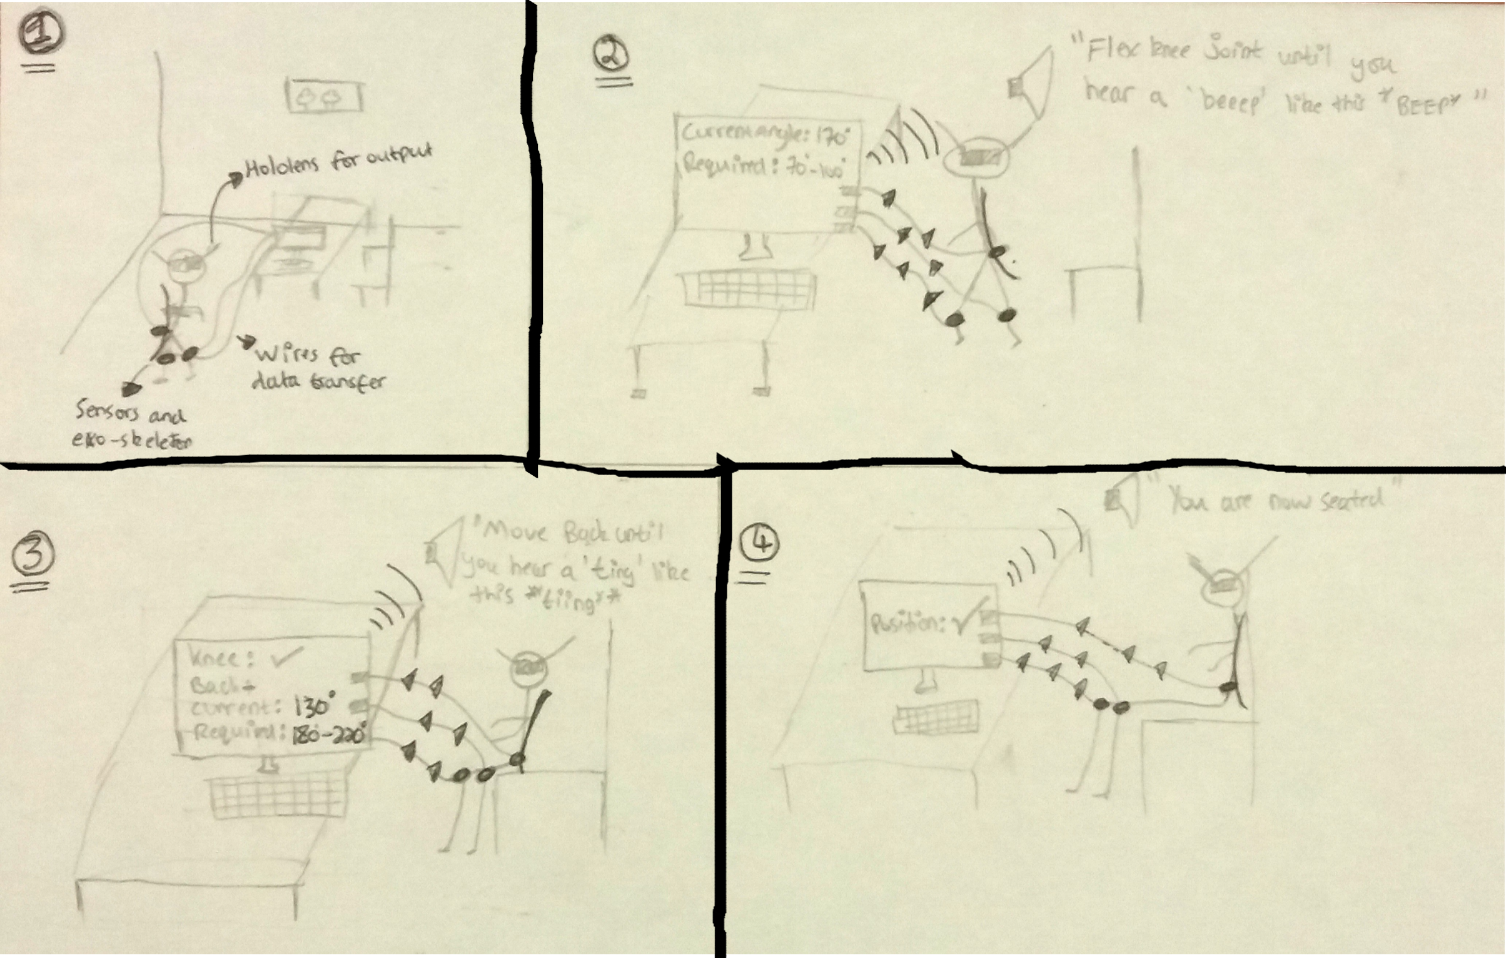 1
Hololens for output
Wires for
data transfer
Sensors and
exo-skeleton
2
"Flex knee joint until you
hear a 'beeep' like this *BEEP*"
Current angle: 170°
Required: 70°-100°
3
"Move Back until
you hear a 'ting' like
this *tiing*"
Knee: ✓
Back→
current: 130°
Required: 180-220°
4
"You are now seated"
Position: ✓